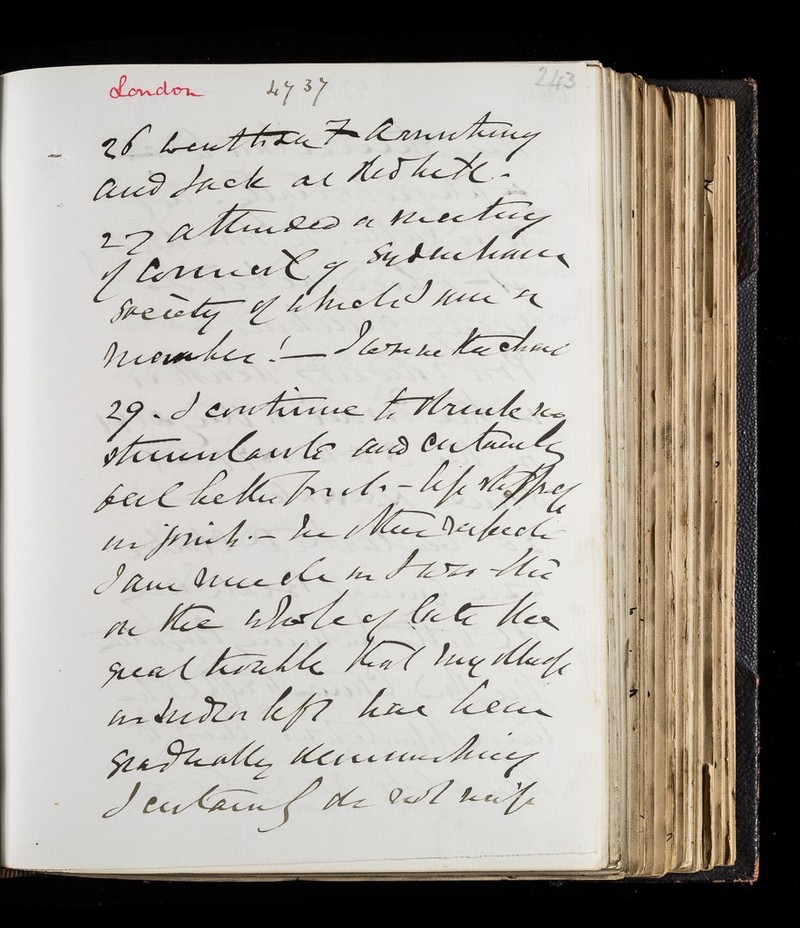 London 4737 243
26 went to see Armstrong
and Jack at Redhill -
27 attended a meeting
of Council of Sydenham
Society of which I am a
member! — I was in the chair
29. I continue to drink no
stimulants and certainly
feel better for it. - less
in joints. - In other respects
I am much as I was
on the whole of late the
great trouble that my
left has been
gradually diminishing
I certainly do not